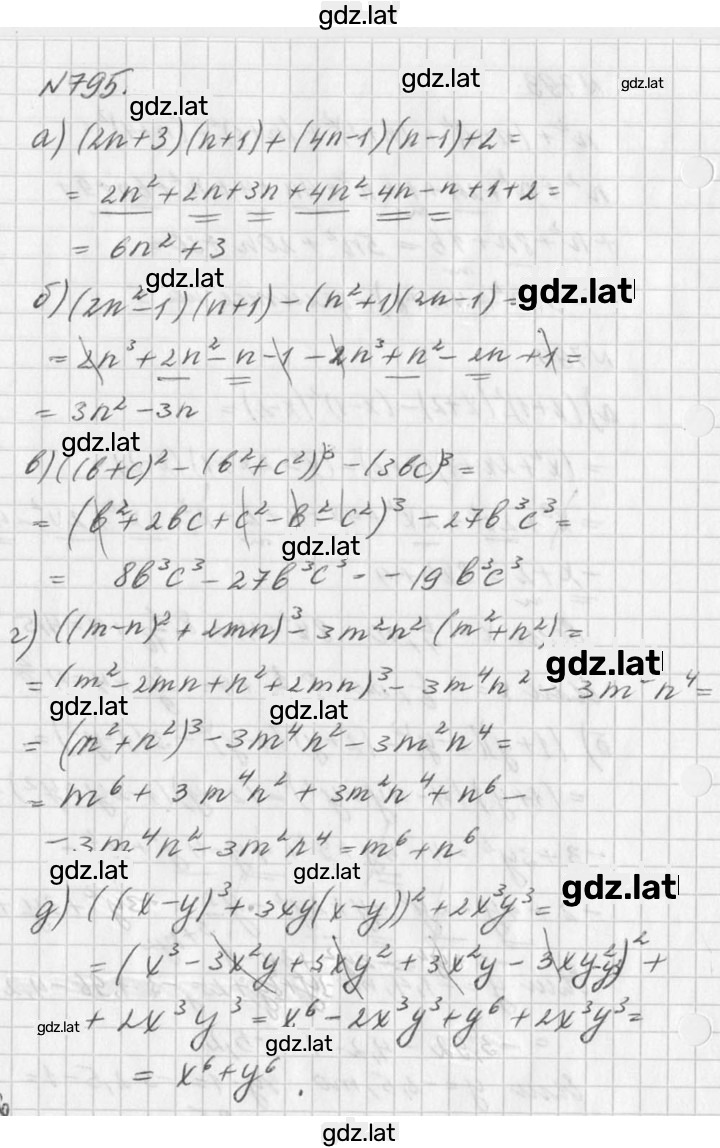 gdz.lat
N795.
gdz.lat
gdz.lat
gdz.lat
а) (2n+3)(n+1)+(4n-1)(n-1)+2=
= 2n²+2n+3n+4n²-4n-n+1+2=
= 6n²+3
gdz.lat
б) (2n²-1)(n+1)-(n²+1)(2n-1)=
gdz.lat
= 2n³+2n²-n-1-2n³+n²-2n+1=
= 3n²-3n
gdz.lat
в) ((b+c)²-(b²+c²))³-(3bc)³=
= (b²+2bc+c²-b²-c²)³-27b³c³=
gdz.lat
= 8b³c³-27b³c³=-19b³c³
г) ((m-n)²+2mn)³-3m²n²(m²+n²)=
gdz.lat
= (m²-2mn+n²+2mn)³-3m⁴n²-3m²n⁴=
gdz.lat
gdz.lat
= (m²+n²)³-3m⁴n²-3m²n⁴=
= m⁶+3m⁴n²+3m²n⁴+n⁶-
-3m⁴n²-3m²n⁴=m⁶+n⁶
gdz.lat
gdz.lat
gdz.lat
д) ((x-y)³+3xy(x-y))²+2x³y³=
= (x³-3x²y+3xy²+3x²y-3xy²-y³)²+
gdz.lat
+2x³y³=x⁶-2x³y³+y⁶+2x³y³=
gdz.lat
= x⁶+y⁶.
gdz.lat